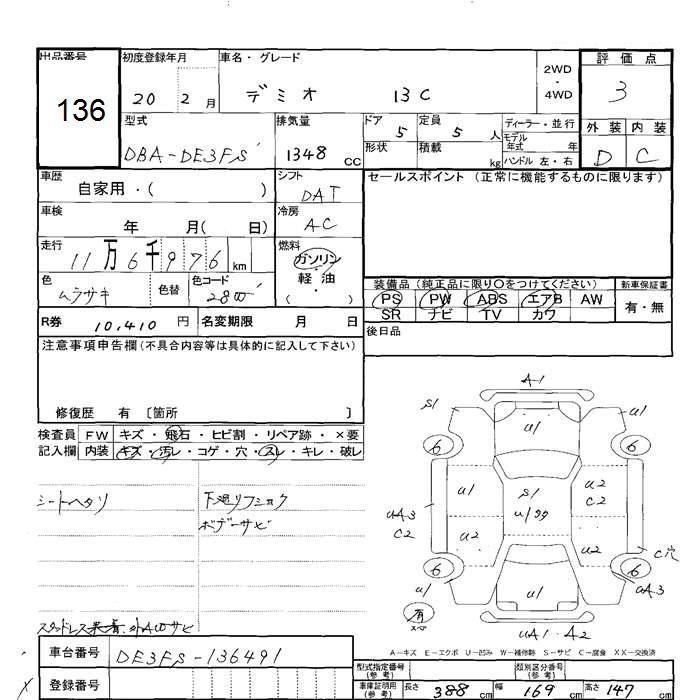 出品番号
136
初度登録年月
20 2 月
車名・グレード
デミオ 13C
2WD
・
4WD
評価点
3
外装 内装
D C
型式
DBA-DE3FS
排気量
1348 cc
ドア
5
定員
5 人
形状
積載
kg
ディーラー・並行
モデル
年式 年
ハンドル 左・右
車歴
自家用・( )
シフト
DAT
セールスポイント (正常に機能するものに限ります)
車検
年 月( 日)
冷房
AC
走行
11万6千976 km
燃料
ガソリン
・
軽・油
( )
色
ムラサキ
色替
色コード
装備品 (純正品に限り〇をつけてください)
新車保証書
PS PW ABS エアB AW
SR ナビ TV カワ
有・無
R券 10,410 円
名変期限 月 日
後日品
注意事項申告欄(不具合内容等は具体的に記入して下さい)
修復歴 有 〔箇所 〕
検査員
記入欄
FW キズ・飛石・ヒビ割・リペア跡・×要
内装 キズ・汚レ・コゲ・穴・スレ・キレ・破レ
シートヘタリ
下廻りフショク
ボデーサビ
A-1
S1 u1 u1
6 6
u1 S1 u2
C2
uA3
C2
u2 u2
C穴
6 6
u1 u1 uA3
有
uA1・A2
A-キズ E-エクボ U-凹み W-補修跡 S-サビ C-腐食 XX-交換済
車台番号
DE3FS-136491
登録番号
型式指定番号
(参考)
類別区分番号
(参考)
車庫証明用
(参考)
長さ 388 cm
幅 169 cm
高さ 147 cm